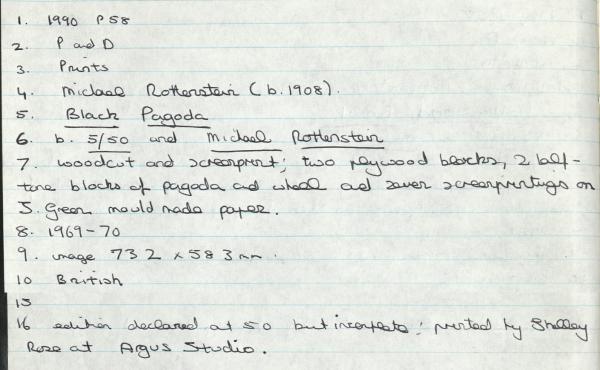 1. 1990 P58
2. P and D
3. Prints
4. Michael Rothenstein (b.1908).
5. Black Pagoda
6. b. 5/50 and Michael Rothenstein
7. woodcut and screenprint; two plywood blocks, 2 half-
tone blocks of pagoda and wheel and seven screenprintings on
J. Green mould made paper.
8. 1969-70
9. image 732 x 583mm.
10 British
15
16 edition declared at 50 but incomplete; printed by Shelley
Rose at Argus Studio.